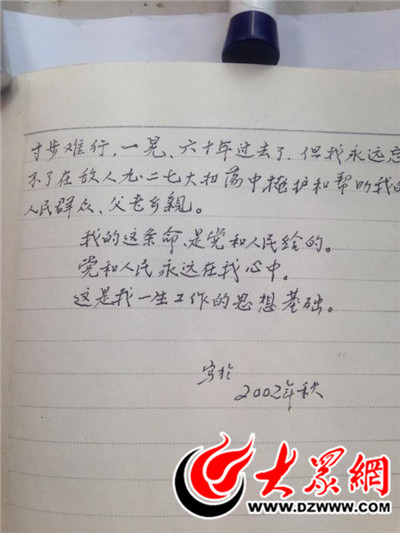 寸步难行，一晃、六十年过去了，但我永远忘
不了在敌人九·二七大扫荡中掩护和帮助我的
人民群众、父老乡亲。
我的这条命、是党和人民给的。
党和人民永远在我心中。
这是我一生工作的思想基础。
写於
2002年秋
大眾網
WWW.DZWWW.COM